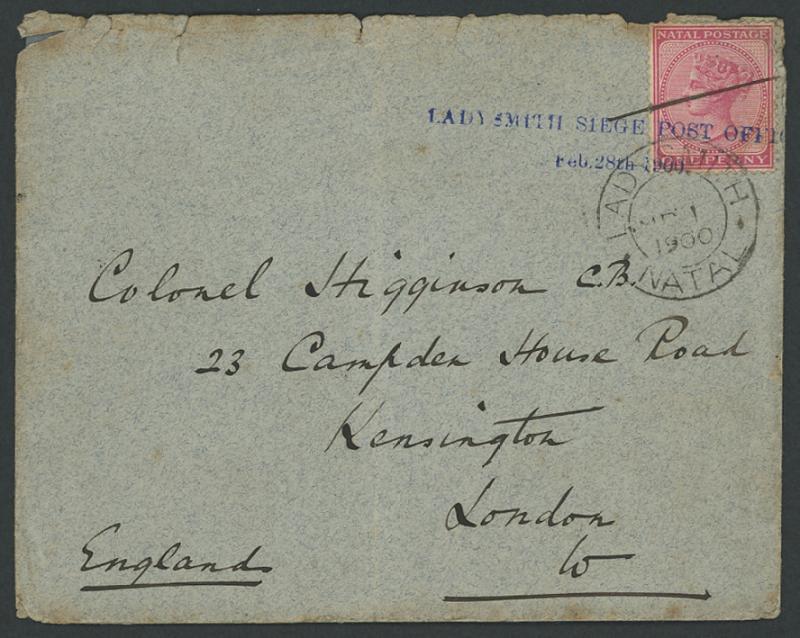 NATAL POSTAGE
LADYSMITH SIEGE POST OFFIC
Feb. 28th 1900.
PENNY
LADYSMITH
1
1900
NATAL
Colonel Higginson C.B.
23 Campden House Road
Kensington
London
England W